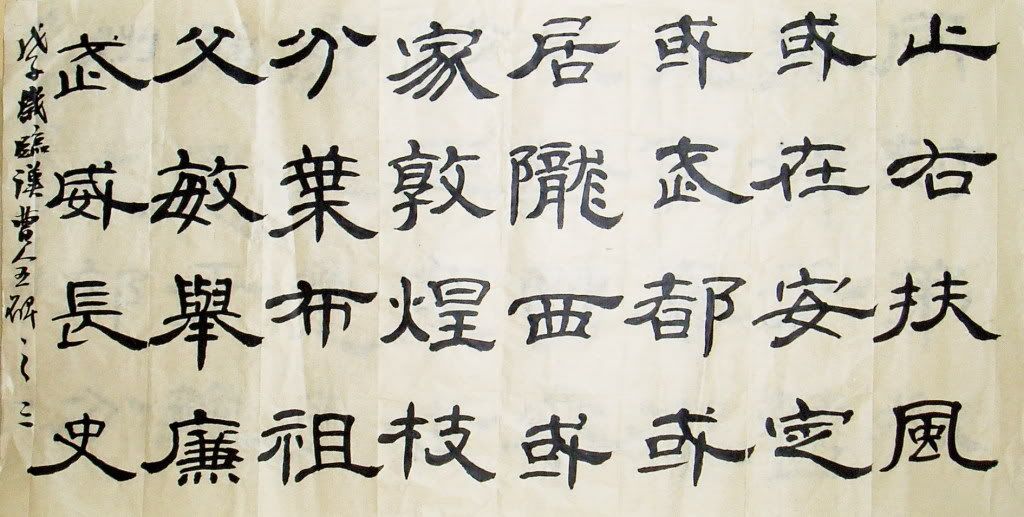 止右扶風
或在安定
或武都或
居隴西或
家敦煌枝
分葉布祖
父敏舉廉
武威長史
戊子歲臨漢曹全碑之二